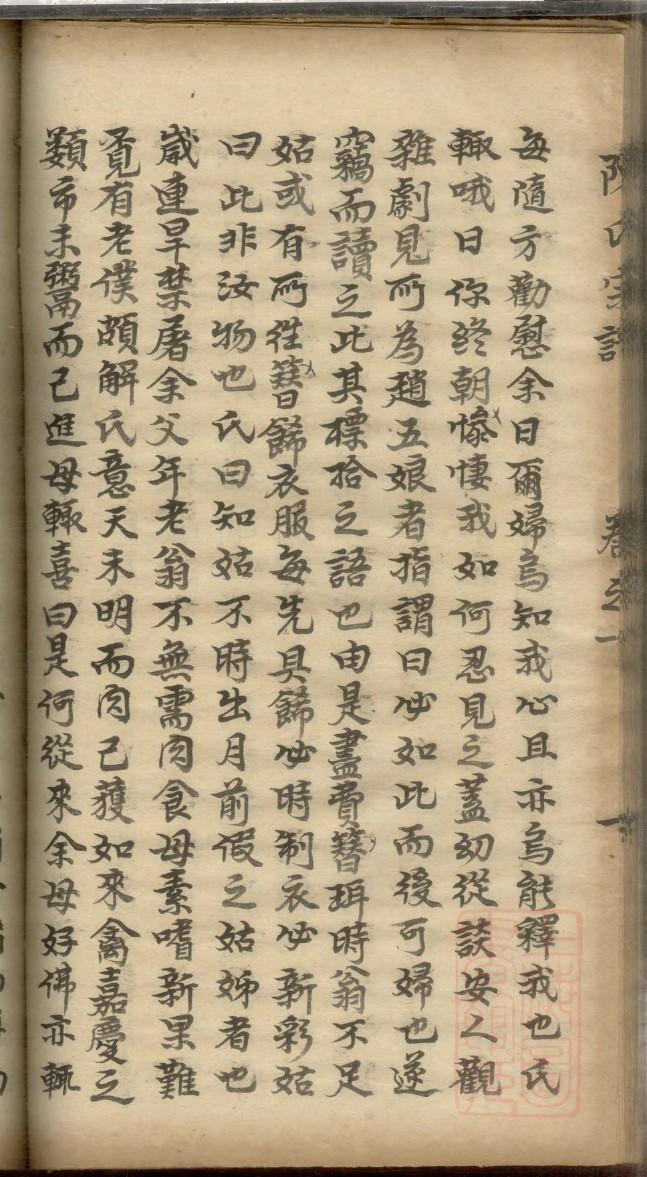 每隨方勸慰余曰爾婦烏知我心且亦烏能釋我也氏
輙哦曰你終朝慘悽我如何忍見之蓋幼從談安人觀
雜劇見所為趙五娘者指謂曰必如此而後可婦也遂
竊而讀之此其標拾之語也由是盡費簪珥時翁不足
姑或有所往簪餙衣服每先具餙必時制衣必新彩姑
曰此非汝物也氏曰知姑不時出月前假之姑姊者也
歲連旱禁屠余父年老翁不無需肉食母素嗜新果難
覔有老僕頗解氏意天未明而肉已獲如來禽嘉慶之
類市未鬻而已進母輙喜曰是何從來余母好佛亦輙